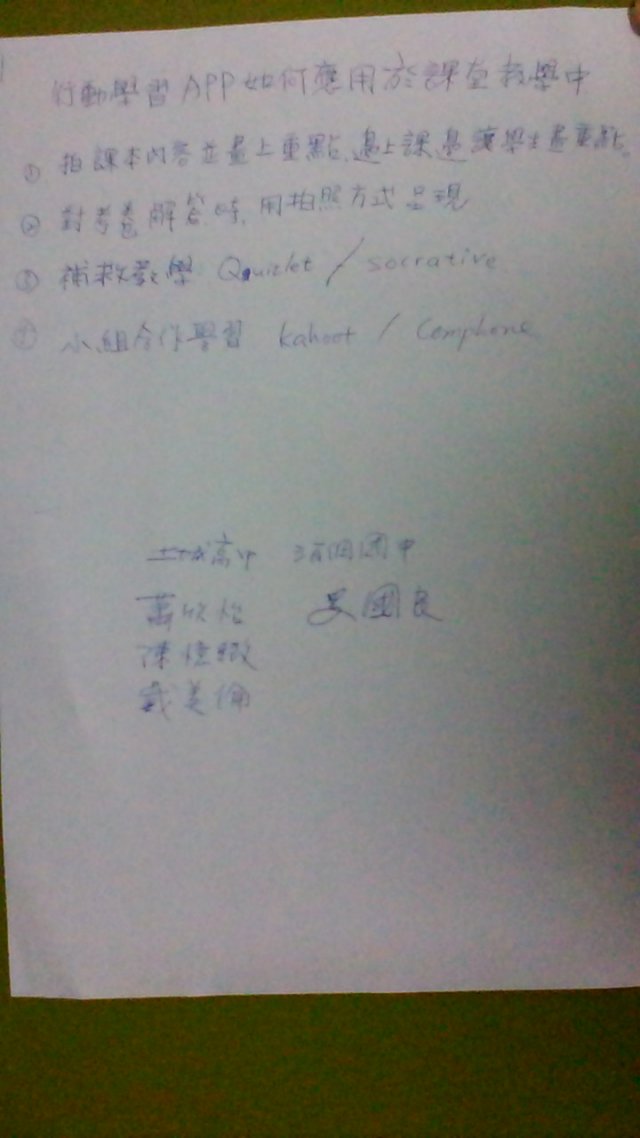 行動學習 APP 如何應用於課堂教學中
① 拍課本內容並畫上重點、邊上課邊讓學生畫重點。
② 對考卷解答時, 用拍照方式呈現
③ 補救教學 Quizlet / socrative
④ 小組合作學習 kahoot / Comphone
土城高中 國中
蕭欣怡 吳國良
陳
戴美倫